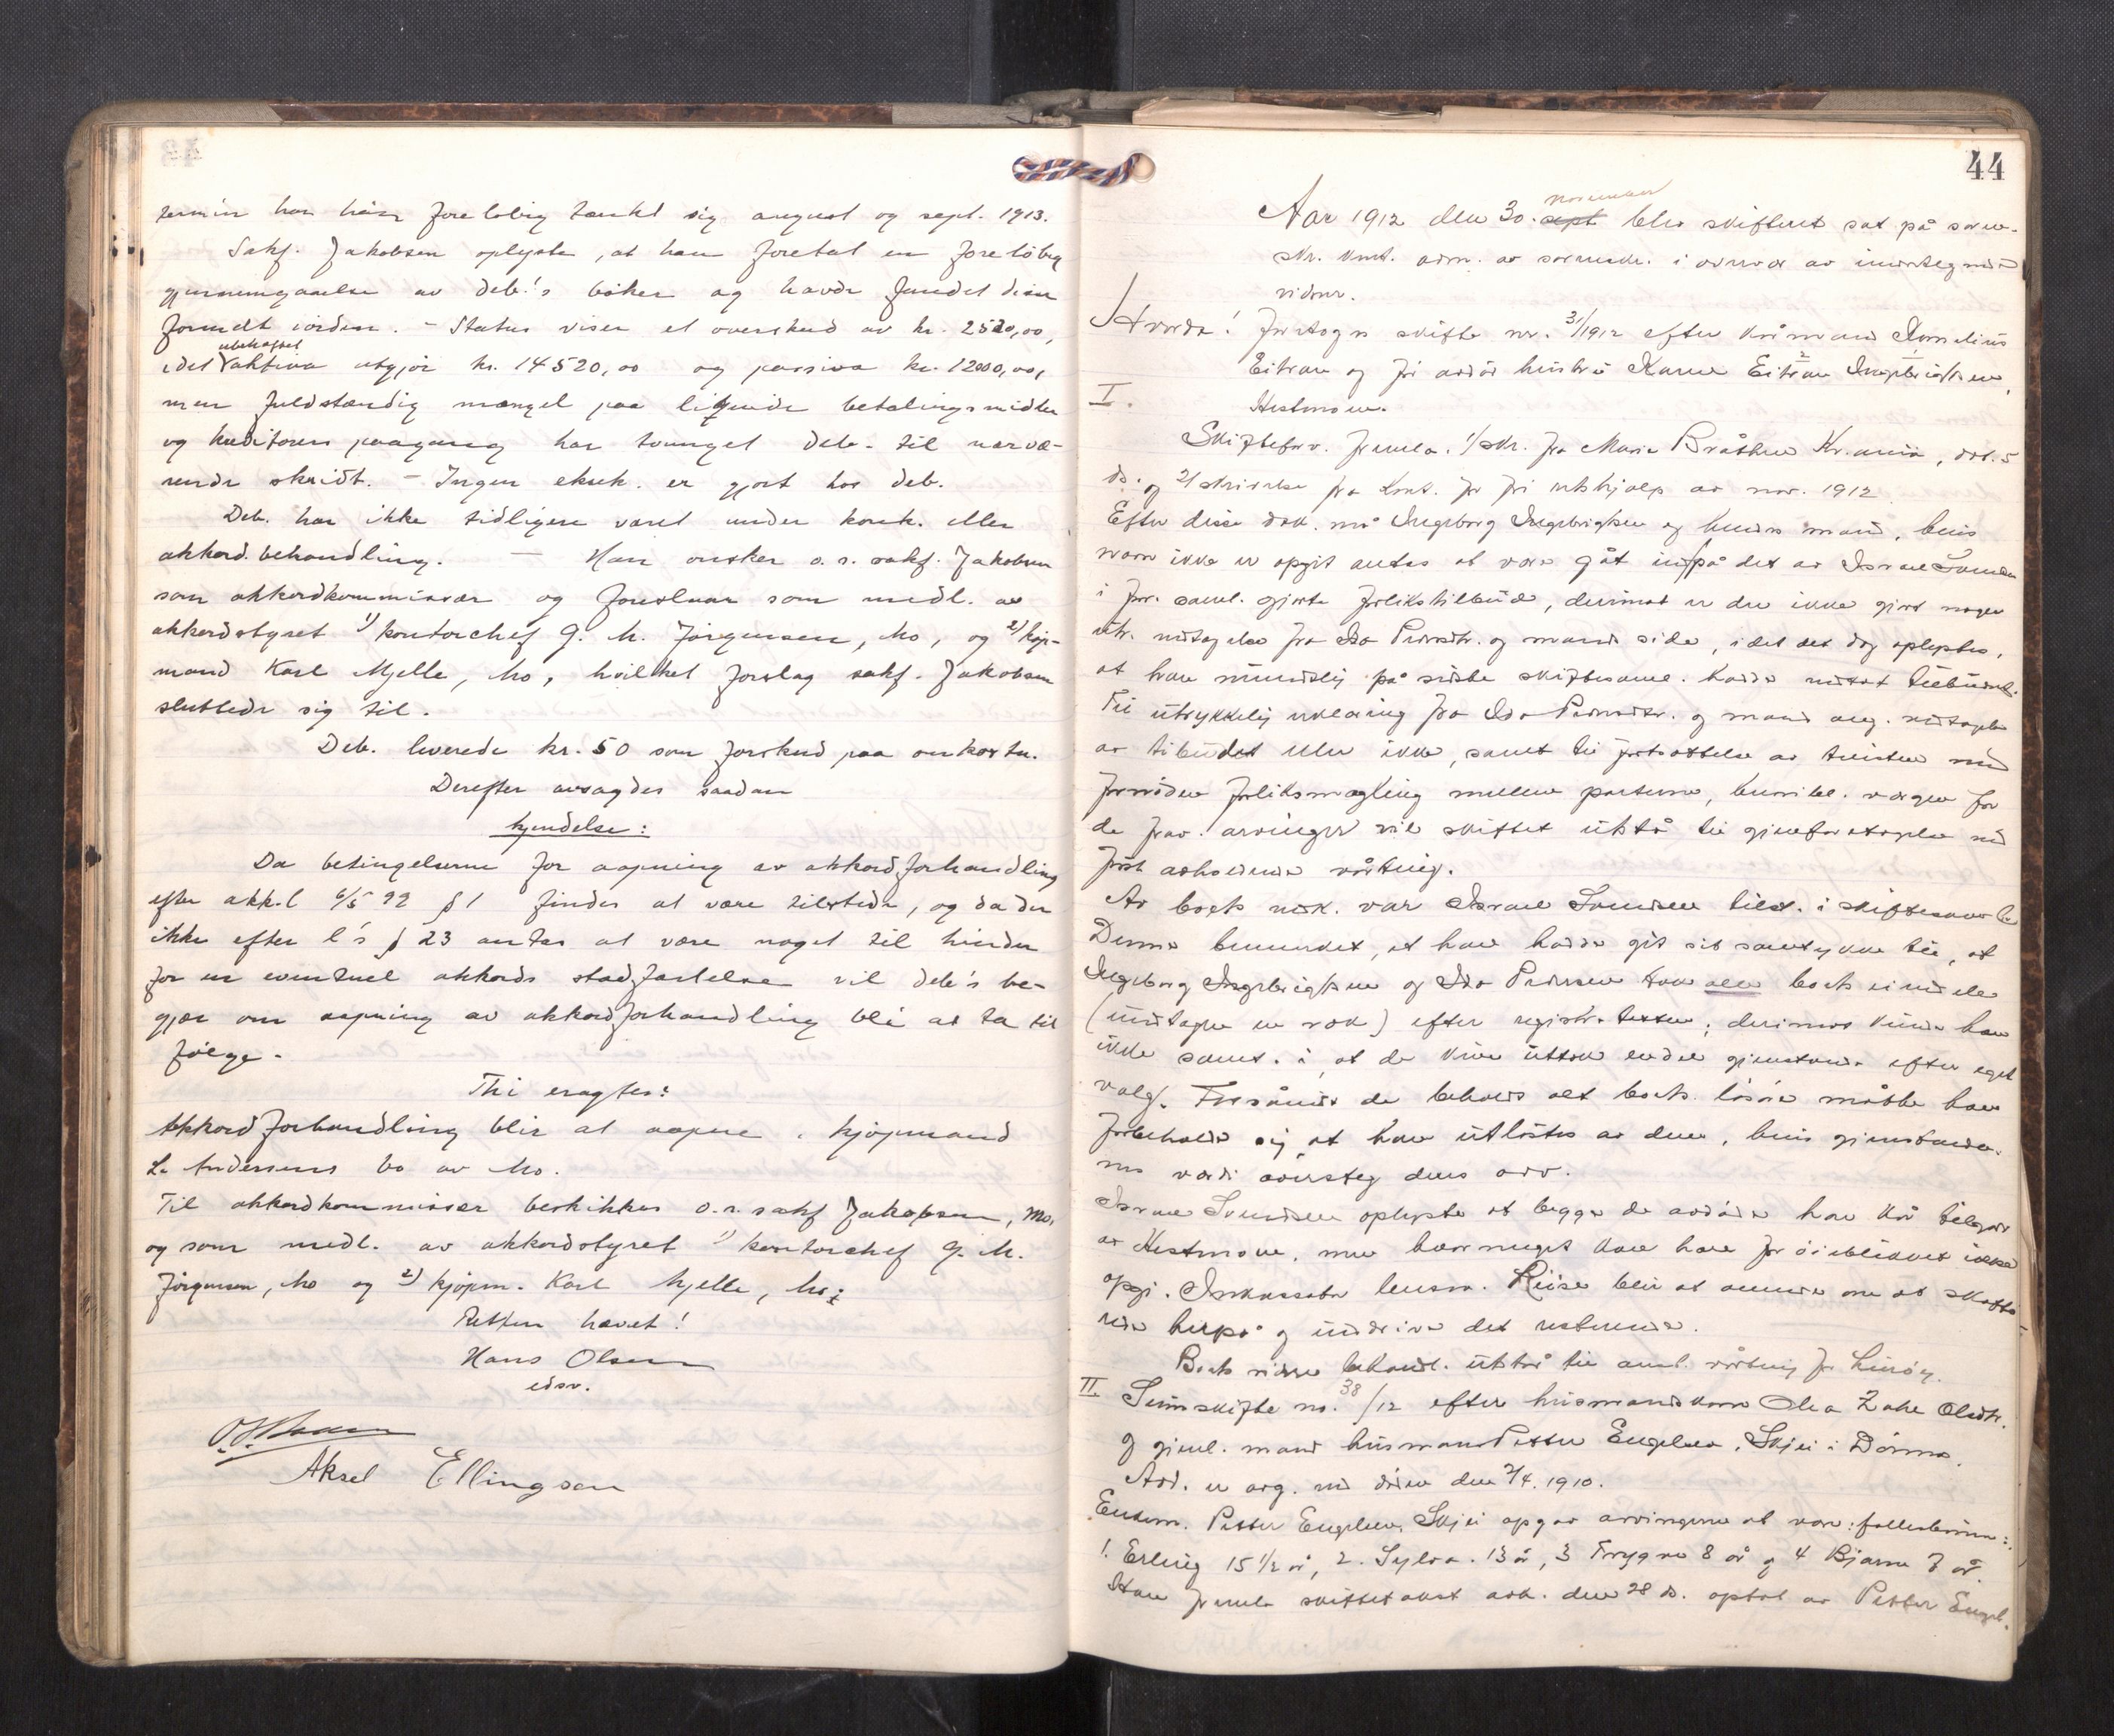 termin har han foreløbig tænkt sig august og sept. 1913.
Sakf. Jakobsen oplyste, at han foretat en foreløbig
gjennemgaaelse av deb.'s bøker og havde fundet disse
formelt iorden. - Status viser et overskud av kr. 2520,00,
idet ubehæftet aktiva utgjør kr. 14520,00 og passiva kr. 12000,00,
men fuldstændig mangel paa likvide betalingsmidler
og kreditorers paagang har tvunget deb. til nærvæ-
rende skridt. - Ingen eksek. er gjort hos deb.
Deb. har ikke tidligere været under konk. eller
akkord.behandling. — Han ønsker o.r.sakf. Jakobsen
som akkordkommissær og foreslaar som medl. av
akkordstyret 1) kontorchef G. M. Jørgensen, Mo, og 2) kjøp-
mand Karl Mjelle, Mo, hvilket forslag sakf. Jakobsen
sluttede sig til.
Deb. leverede kr. 50 som forskud paa omkostn.
Derefter avsagdes saadan
kjendelse:
Da betingelserne for aapning av akkordforhandling
efter akk.l 6/5 99 § 1 findes at være tilstede, og da der
ikke efter l's § 23 antas at være noget til hinder
for en eventuel akkords stadfæstelse vil deb's be-
gjær om aapning av akkordforhandling bli at ta til
følge.
Thi eragtes:
Akkordforhandling blir at aapne i kjøpmand
L. Andersens bo av Mo.
Til akkordkommissær beskikkes o.r.sakf Jakobsen, Mo,
og som medl. av akkordstyret 1) kontorchef G. M.
Jørgensen, Mo og 2) kjøpm. Karl Mjelle, Mo:
Retten hævet!
Hans Olsen
edsv.
Aksel Ellingsen
44
Aar 1912 den 30. sept november blev skifteret sat på soren-
skr. kont. adm. av sorenskr. i overvær av undertegnede
vidner.
Hvorda: Foretoges skifte nr. 31/1912 efter kårmand Kornelius
Eitran og før avdøde hustru Karen Eitran Ingebrigtsen,
I. Hestmoen.
Skifteforv. fremla. 1/ skr. fra Marie Bråthen Kr.ania, dat. 5
ds. og 2/ skrivelse fra kont. for fri retshjælp av nov. 1912
Efter disse dok. må Ingeborg Ingebrigtsen og hendes mand, hvis
navn ikke er opgit antas at være gåt ind på det av Israel Svendsen
i forr. saml. gjorte forlikstilbud, derimot er der ikke gjort nogen
utr. vedtagelse fra Ida Pedersdtr. og mands side, idet det dog oplystes,
at han mundtlig på sidste skiftesaml. hadde vedtat tilbudet.
Til utrykkelig erklæring fra Ida Pedersdtr. og mand ang. vedtagelse
av tilbudet eller ikke, samt til fortsættelse av tvisten med
fornøden forliksmægling mellem parterne, herunder værgen for
de frav. arvinger vil skiftet utstå til gjenforetagelse ved
først avholdende vårting.
Av boets vedk. var Israel Svendsen tilst. i skiftesaml.
Denne bemerket, at han hadde git sit samtykke til, at
Ingeborg Ingebrigtsen og Ida Pedersen tok alle boets eiendele
(undtagen en vok) efter registr.taksten; derimot kunde han
ikke samt. i, at de kun uttok endel gjenstande efter eget
valg. Forsåvidt de beholdt alt boets løsøre måtte han
forbeholde sig at han utløstes av dem, hvis gjenstande-
nes værdi oversteg dens arv.
Israel Svendsen oplyste at begge de avdøde har kår tilgode
av Hestmoen, men hvormeget kan han for øieblikket ikke
opgi. Inkassator lensm. Riise blir at anmode om at skaffe
rede herpå og inddrive det resterende.
Boets videre behandl. utstår til aml. vårting for Lurøy.
II. Sluttskifte no. 38/12 efter husmandskone Olea Zahe Olsdtr.
og gjenl. mand husmand Petter Engelsen, Skjei i Dønna.
Avd. er avg. ved døden den 2/4. 1910.
Enkem. Petter Engelsen, Skjei opgav arvingerne at være: fællesbarn:
1. Erling 15 1/2 år, 2. Sylva. 13 år, 3 Trygve 8 år og 4 Bjarne 7 år.
Han fremla skiftetakst avh. den 28 ds. optat av Petter Engel.